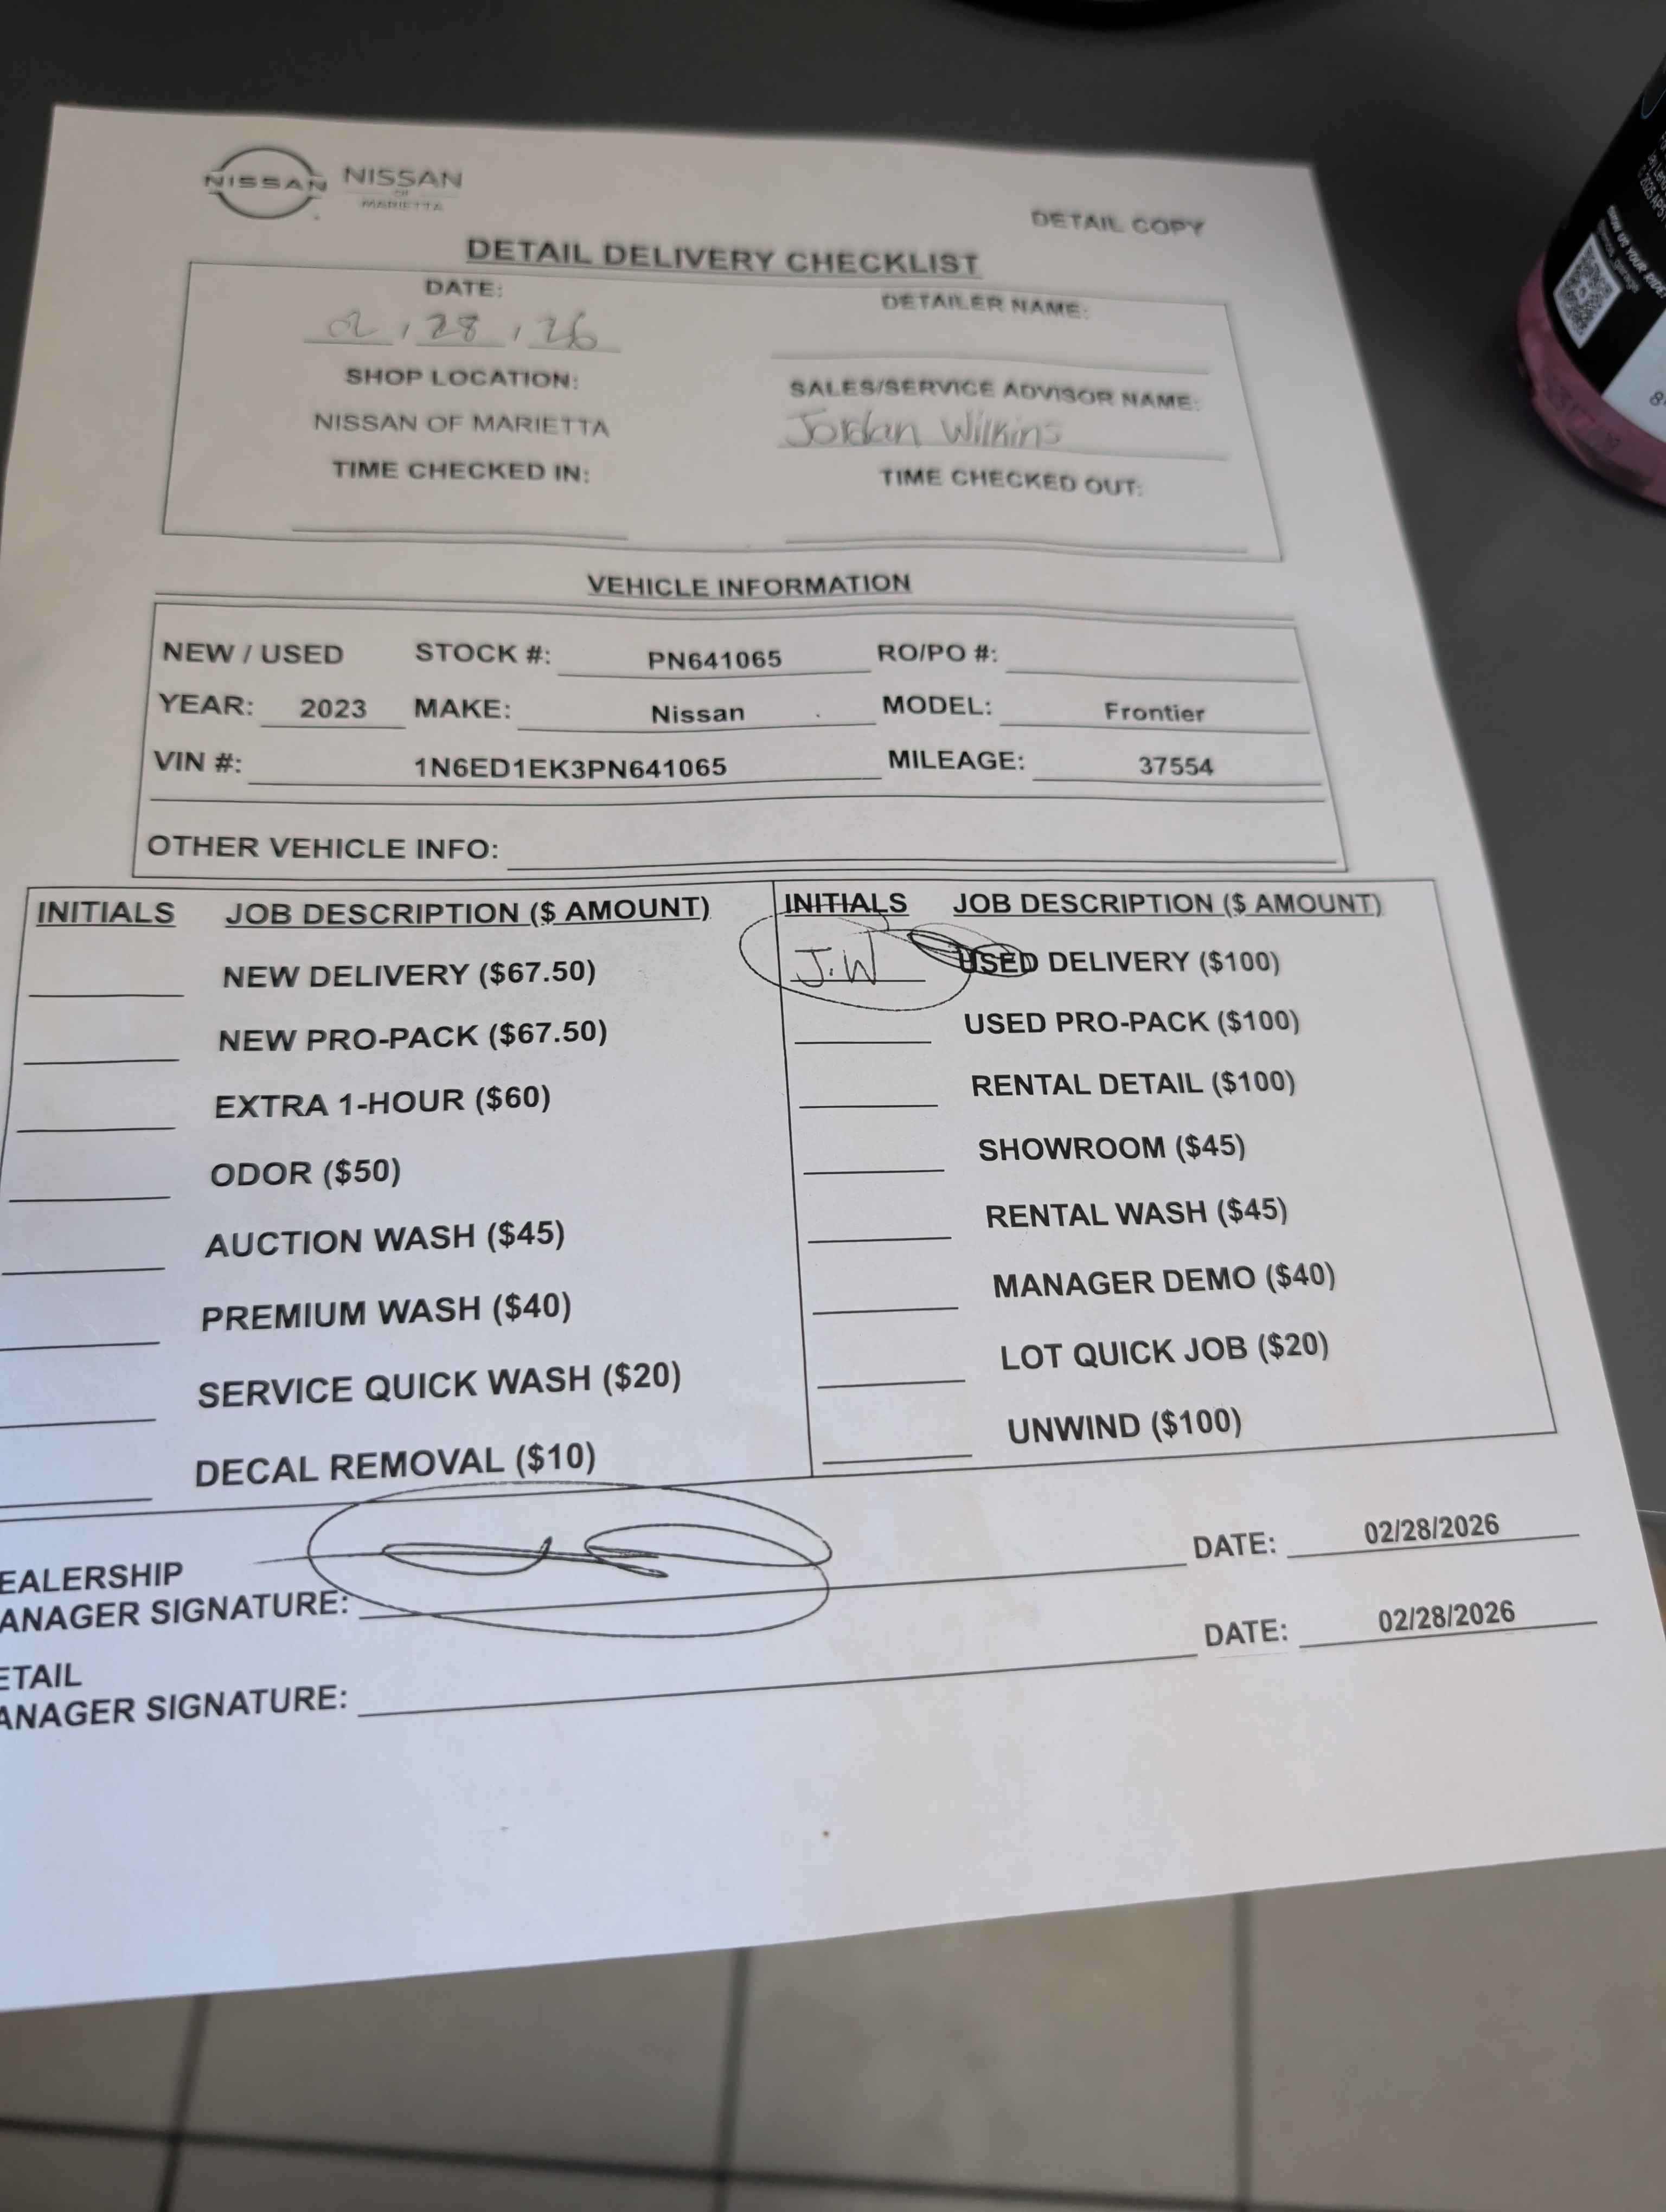 NISSAN NISSAN
OF
MARIETTA
DETAIL COPY
DETAIL DELIVERY CHECKLIST
DATE: DETAILER NAME:
02, 28, 26
SHOP LOCATION: SALES/SERVICE ADVISOR NAME:
NISSAN OF MARIETTA Jordan Wilkins
TIME CHECKED IN: TIME CHECKED OUT:
VEHICLE INFORMATION
NEW / USED STOCK #: PN641065 RO/PO #:
YEAR: 2023 MAKE: Nissan MODEL: Frontier
VIN #: 1N6ED1EK3PN641065 MILEAGE: 37554
OTHER VEHICLE INFO:
INITIALS JOB DESCRIPTION ($ AMOUNT)
NEW DELIVERY ($67.50)
NEW PRO-PACK ($67.50)
EXTRA 1-HOUR ($60)
ODOR ($50)
AUCTION WASH ($45)
PREMIUM WASH ($40)
SERVICE QUICK WASH ($20)
DECAL REMOVAL ($10)
INITIALS JOB DESCRIPTION ($ AMOUNT)
J.W USED DELIVERY ($100)
USED PRO-PACK ($100)
RENTAL DETAIL ($100)
SHOWROOM ($45)
RENTAL WASH ($45)
MANAGER DEMO ($40)
LOT QUICK JOB ($20)
UNWIND ($100)
EALERSHIP
ANAGER SIGNATURE: DATE: 02/28/2026
ETAIL
ANAGER SIGNATURE: DATE: 02/28/2026